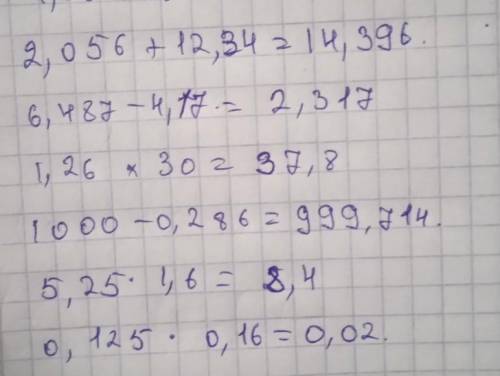 2,056 + 12,34 = 14,396.
6,487 - 4,17 = 2,317
1,26 × 30 = 37,8
1000 - 0,286 = 999,714.
5,25 · 1,6 = 8,4
0,125 · 0,16 = 0,02.